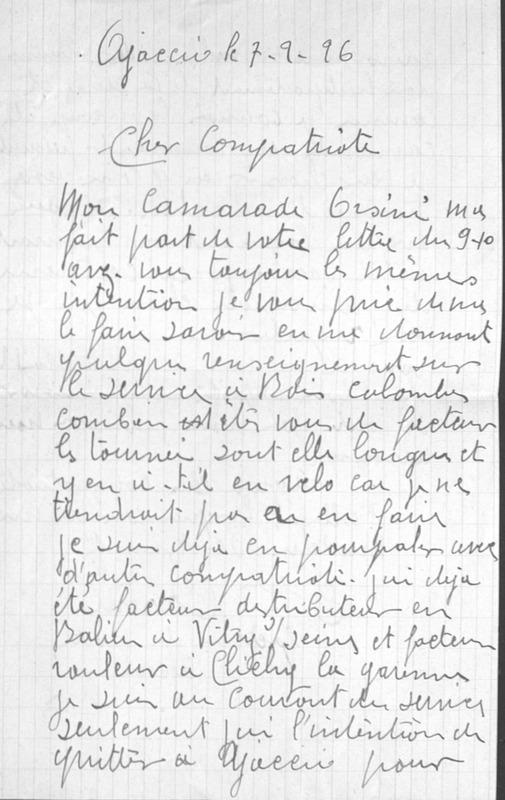 Ajaccio le 7-9-96
Cher Compatriote
Mon Camarade Orsini ma
fait part de votre lettre du 9-10
avez-vous toujour les mêmes
intention je vous prie de me
le faire savoir en me donnant
quelque renseignement sur
le service à Bois Colombes
combien êtes vous de facteur
les tournée sont elle longue et
y en a-t'il en velo car je ne
tiendrait pas a en faire
je suis deja en pourpaler avec
d'autre compatriote. j'ai deja
été facteur distributeur en
à Vitry s/seine et facteur
rouleur à Clichy la garenne
je suis au courant du service
seulement j'ai l'intention de
quitter à Ajaccio pour